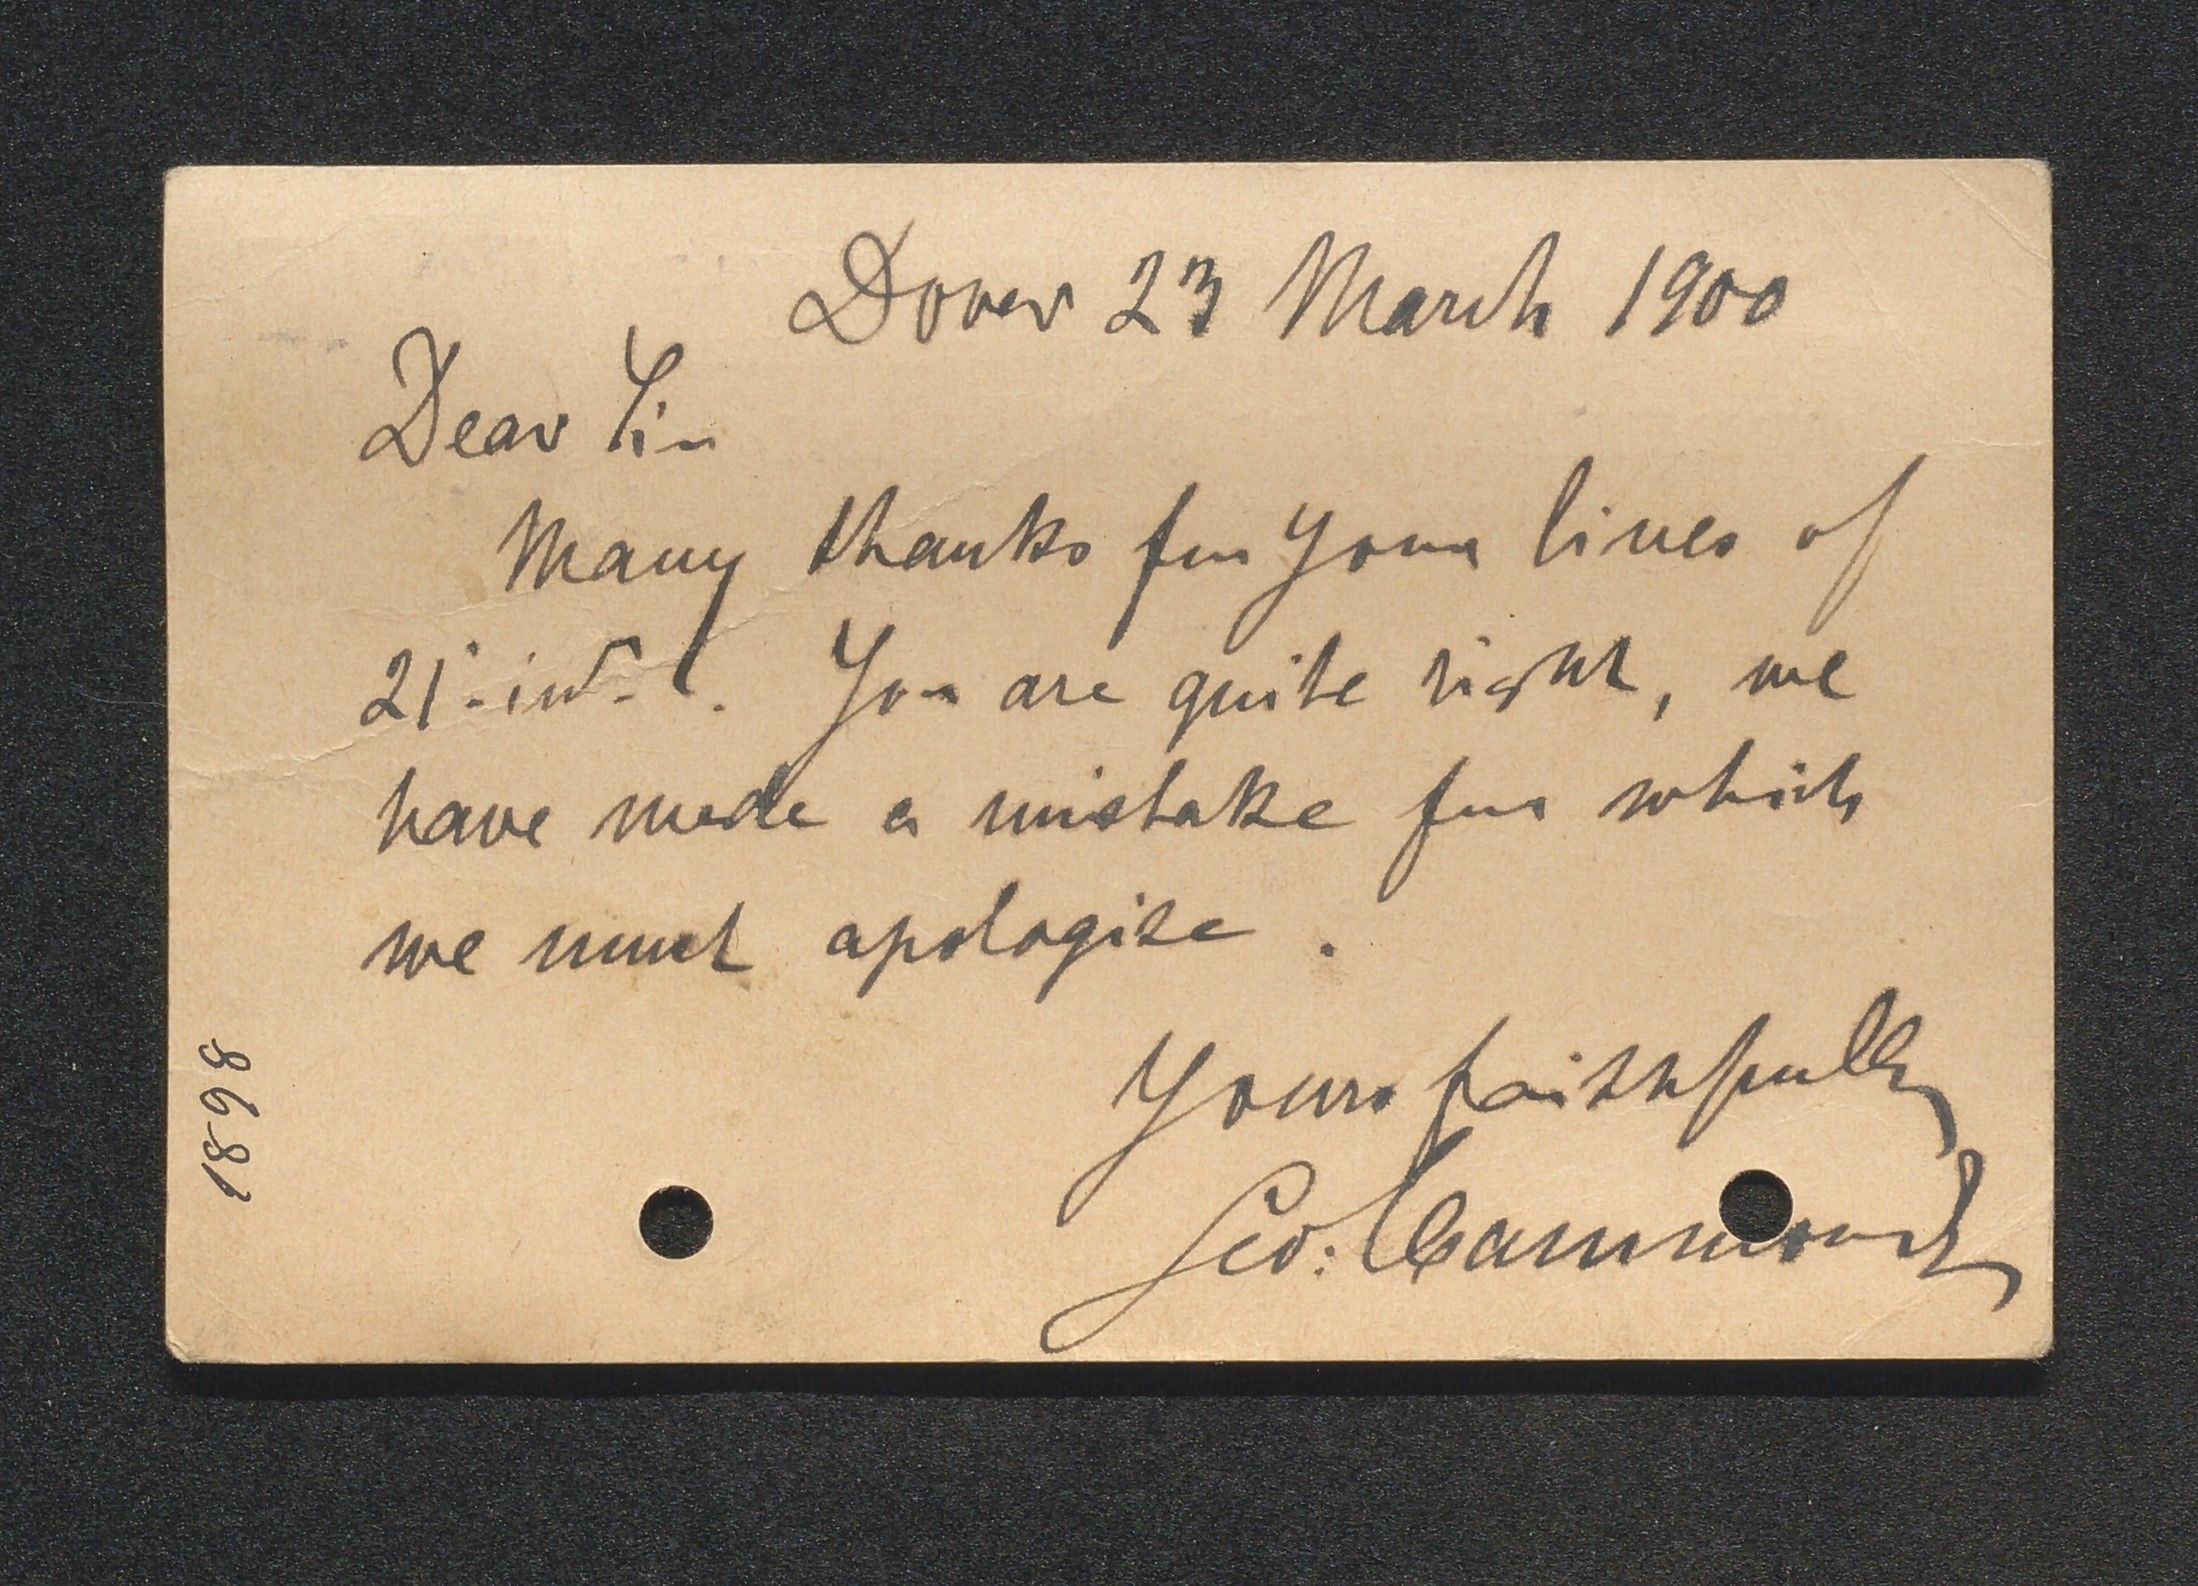 Dover 23 March 1900
Dear Sir
Many thanks for your lines of
21. inst. You are quite right, we
have made a mistake for which
we must apologise.
Yours faithfully
Geo: Hammond
1898